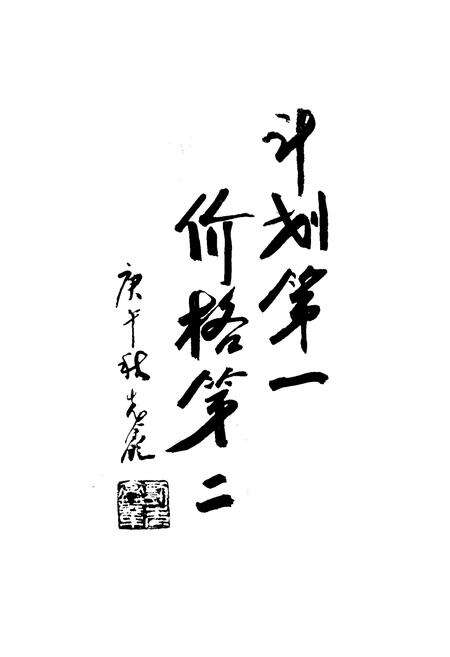 计划第一
价格第二
庚午秋